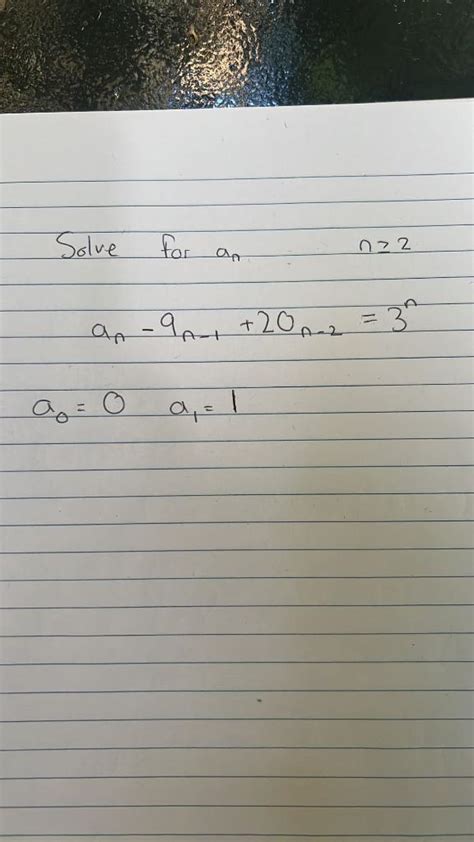 Solve for aₙ n ≥ 2
aₙ - 9ₙ₋₁ + 20ₙ₋₂ = 3ⁿ
a₀ = 0 a₁ = 1